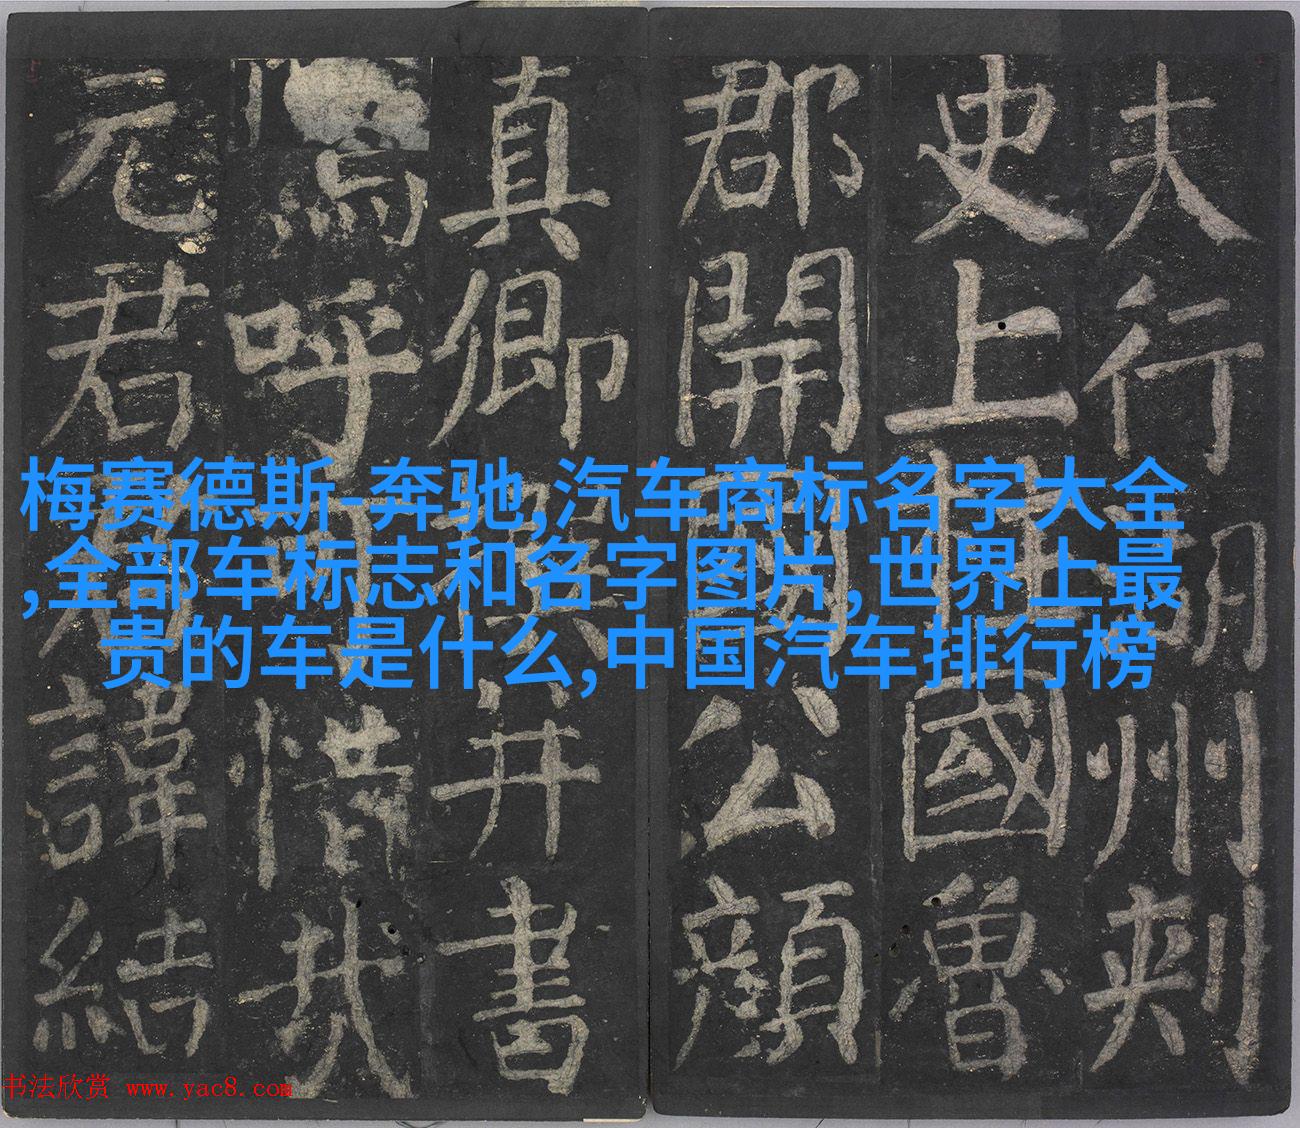 夫行湖州刺
史上柱國魯
郡開國公顏
真卿撰并書
嗚呼可惜哉
元君君諱結
梅赛德斯-奔驰,汽车商标名字大全
,全部车标志和名字图片,世界上最
贵的车是什么,中国汽车排行榜
书法欣赏 www.yac8.com